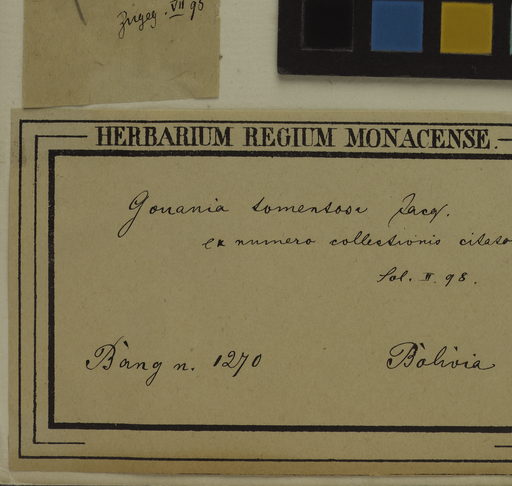 VII 95
HERBARIUM REGIUM MONACENSE.
Gouania tomentosa Jacq.
ex numero collectionis citato
Sol. II. 98.
Bàng n. 1270 Bolivia